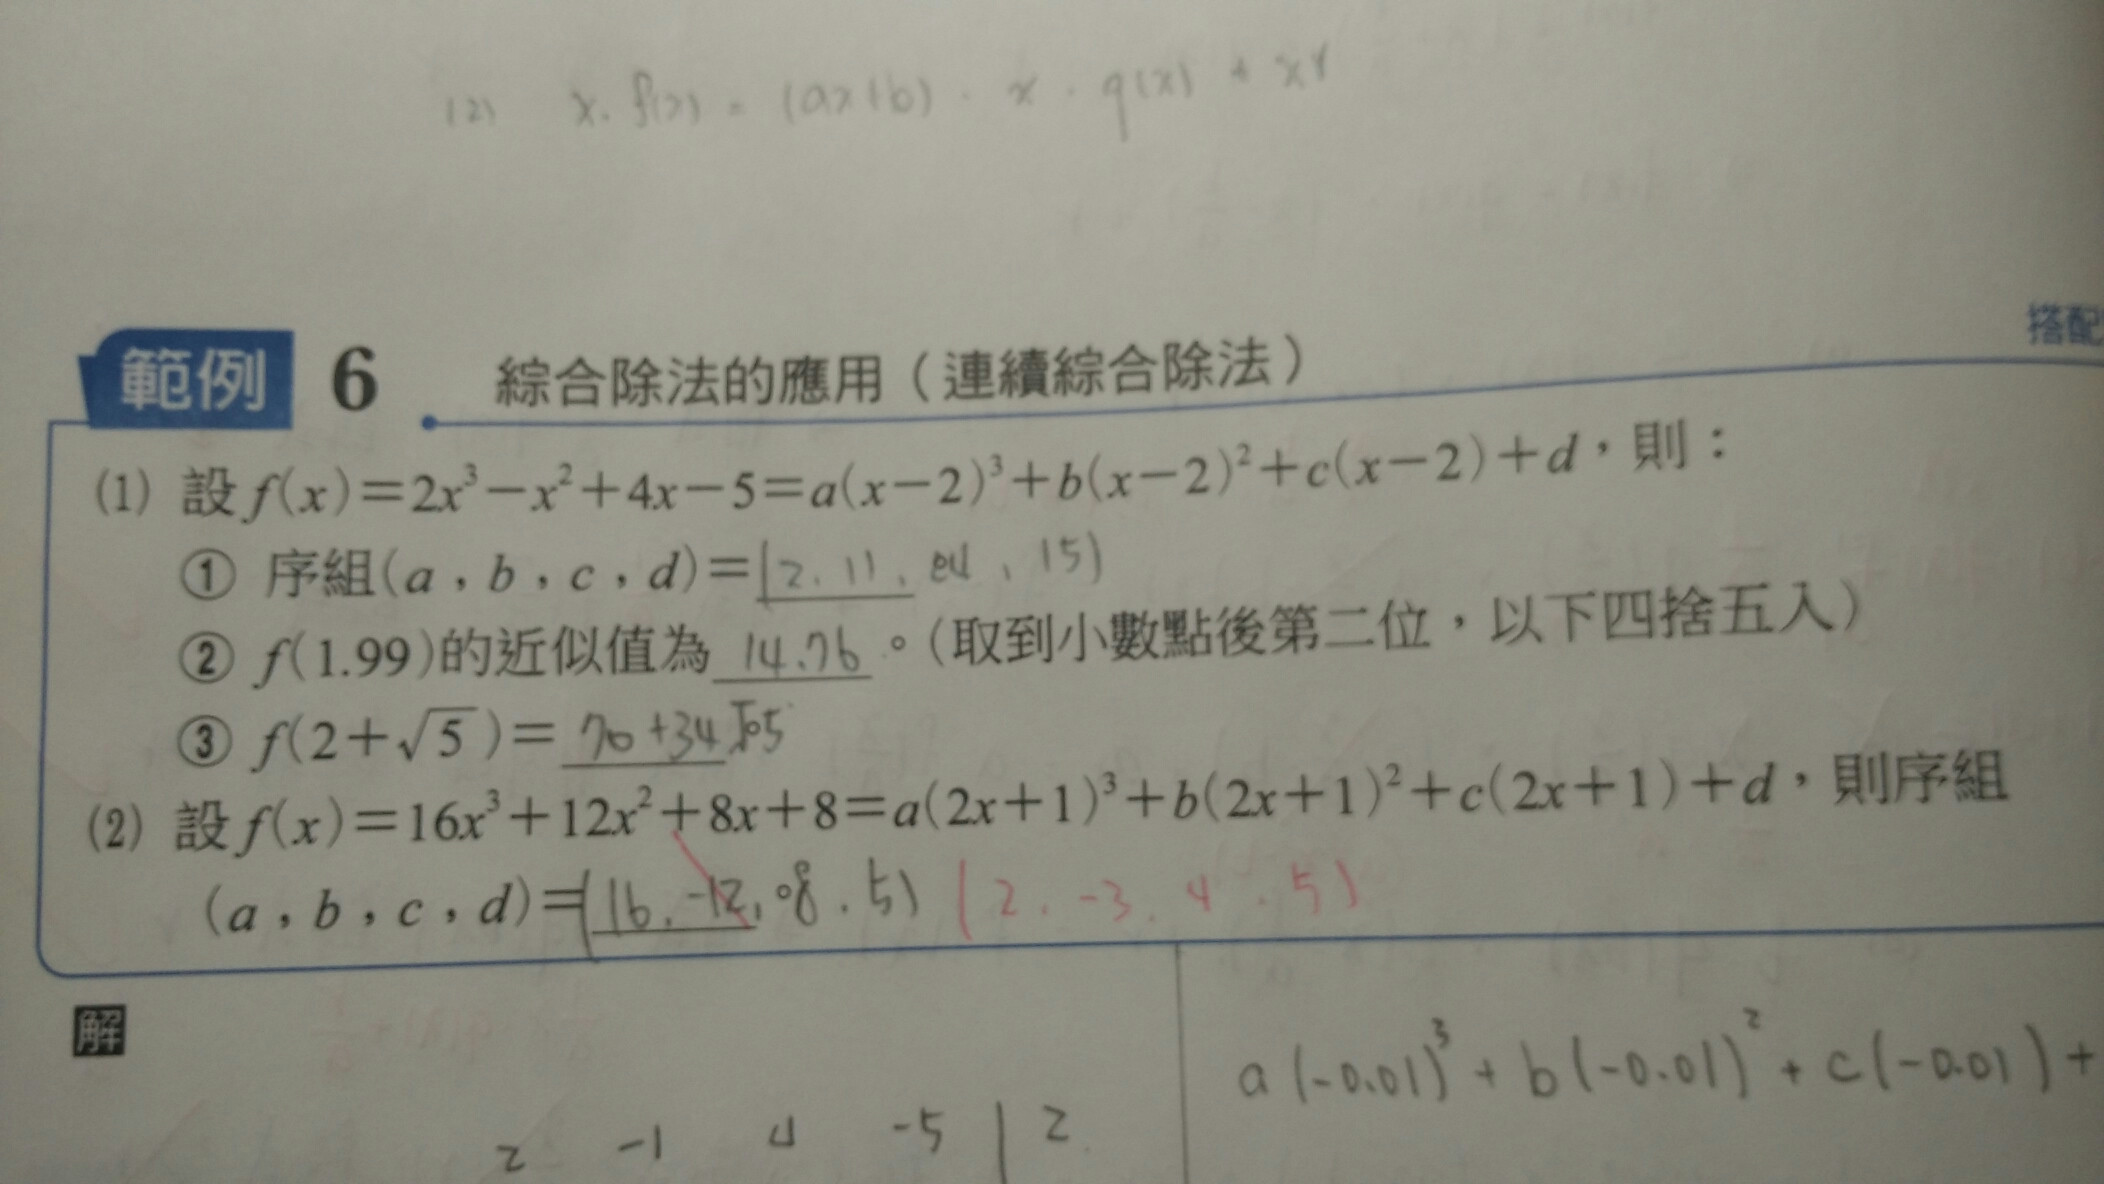 (2) x・f(x) = (ax+b)・x・q(x) + xr
搭配
範例 6 綜合除法的應用(連續綜合除法)
(1) 設f(x)=2x³-x²+4x-5=a(x-2)³+b(x-2)²+c(x-2)+d,則:
① 序組(a,b,c,d)=(2. 11. 24. 15)
② f(1.99)的近似值為 14.76 。(取到小數點後第二位,以下四捨五入)
③ f(2+√5)= 70+34√5
(2) 設f(x)=16x³+12x²+8x+8=a(2x+1)³+b(2x+1)²+c(2x+1)+d,則序組
(a,b,c,d)=(16. -12. 8. 5) (2. -3. 4. 5)
解
a(-0.01)³+b(-0.01)²+c(-0.01)+
2 -1 4 -5 | 2